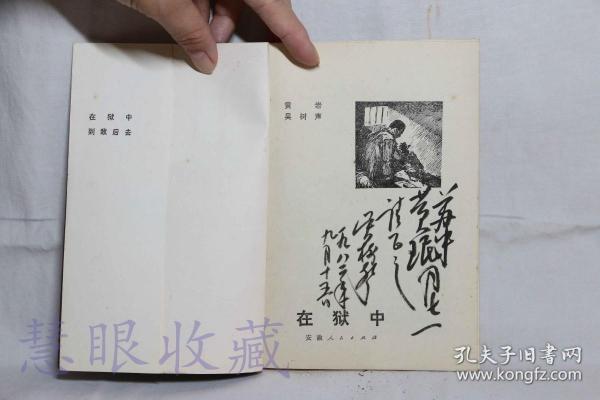 在狱中
到敌后去
黄岩
吴树声
黄琨同志
请正之
吴树声
一九八二年
九月十五日
在狱中
安徽人民出版社
慧眼收藏
孔夫子旧书网
www.kongfz.com